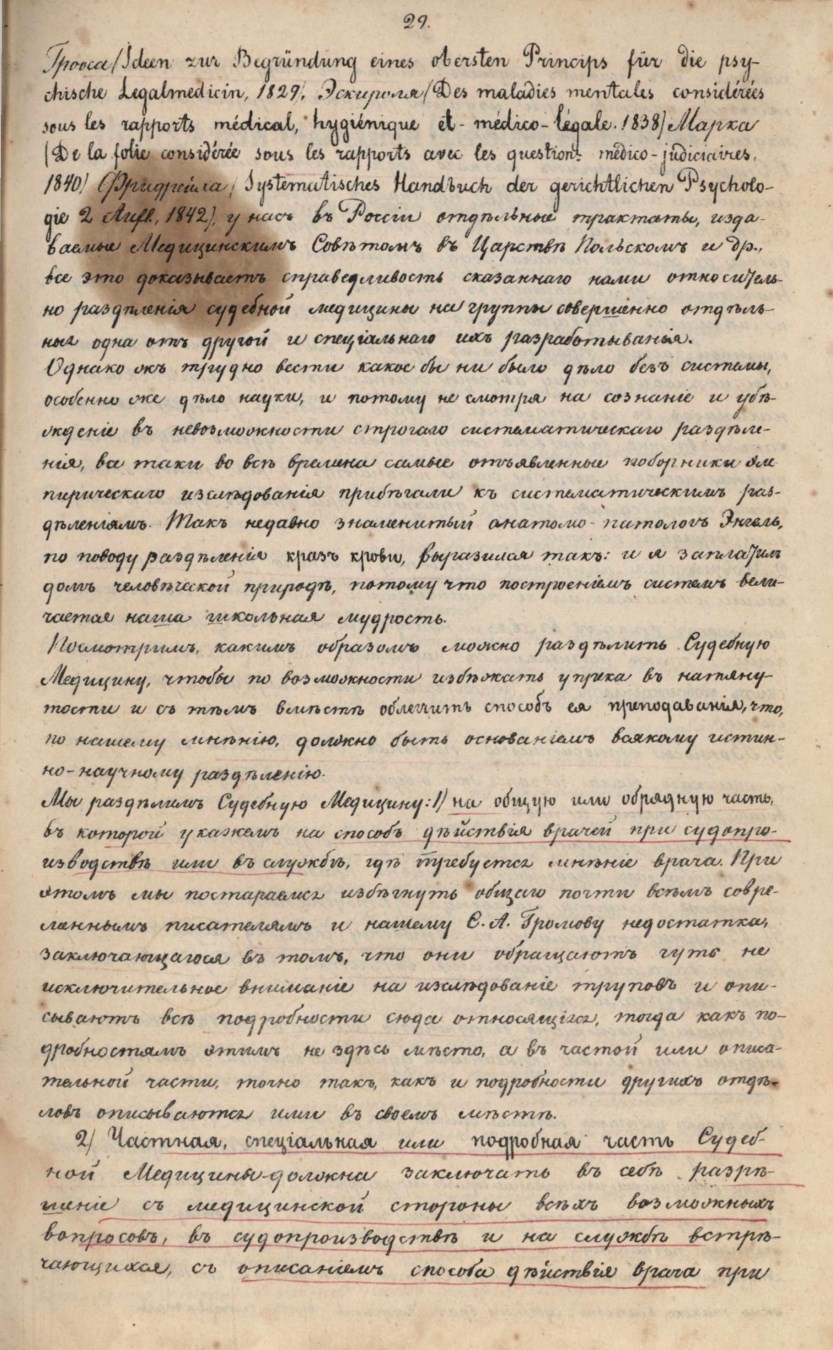 29.
Грооса (Ideen zur Begründung eines obersten Princips für die psy-
chische Legalmedicin, 1829, Эскироля (Des maladies mentales considérées
sous les rapports médical, hygiénique et - médico-légale. 1838) Марка
(De la folie considérée sous les rapports avec les question: médico-judiciaires.
1840) (Фридрейха, Systematisches Handbuch der gerichtlichen Psycholo-
gie 2 Aufl, 1842), у насъ въ Россіи отдѣльные трактаты, изда-
ваемые Медицинскимъ Совѣтомъ въ Царствѣ Польскомъ и др.,
все это доказываетъ справедливость сказаннаго нами относитель-
но раздѣленія судебной медицины на группы совершенно отдѣль-
ныя одна отъ другой и спеціальнаго ихъ разработыванія.
Однако жъ трудно вести какое бы ни было дѣло безъ системы,
особенно же дѣло науки, и потому не смотря на сознаніе и убѣ-
жденіе въ невозможности строгаго систематическаго раздѣле-
нія, все таки во всѣ времена самые отъявленные поборники эм
пирическаго изслѣдованія прибѣгали къ систематическимъ раз-
дѣленіямъ. Такъ недавно знаменитый анатомо-патологъ Энгель,
по поводу раздѣленія кразъ крови, выразился такъ: и я заплатилъ
дань человѣческой природѣ, потому что построеніемъ системъ вели-
чается наша школьная мудрость.
Посмотримъ, какимъ образомъ можно раздѣлить Судебную
Медицину, чтобы по возможности избѣжать упрека въ натяну
тости и съ тѣмъ вмѣстѣ облегчить способъ ея преподаванія, что,
по нашему мнѣнію, должно быть основаніемъ всякому истин-
но-научному раздѣленію.
Мы раздѣлимъ Судебную Медицину: 1) на общую или обрядную часть,
въ которой укажемъ на способъ дѣйствія врачей при судопро-
изводствѣ или въ службѣ, гдѣ требуется мнѣніе врача. При
этомъ мы постараемся избѣгнуть общаго почти всѣмъ совре-
меннымъ писателямъ и нашему С. А. Громову недостатка,
заключающагося въ томъ, что они обращаютъ чуть не
исключительное вниманіе на изслѣдованіе труповъ и опи-
сываютъ всѣ подробности сюда относящіяся, тогда какъ по-
дробностямъ этимъ не здѣсь мѣсто, а въ частной или описа-
тельной части, точно такъ, какъ и подробности другихъ отдѣ-
ловъ описываются ими въ своемъ мѣстѣ.
2) Частная, спеціальная или подробная часть Судеб-
ной Медицины-должна заключать въ себѣ разрѣ-
шеніе съ медицинской стороны всѣхъ возможныхъ
вопросовъ, въ судопроизводствѣ и на службѣ встрѣ-
чающихся, съ описаніемъ способа дѣйствія врача при